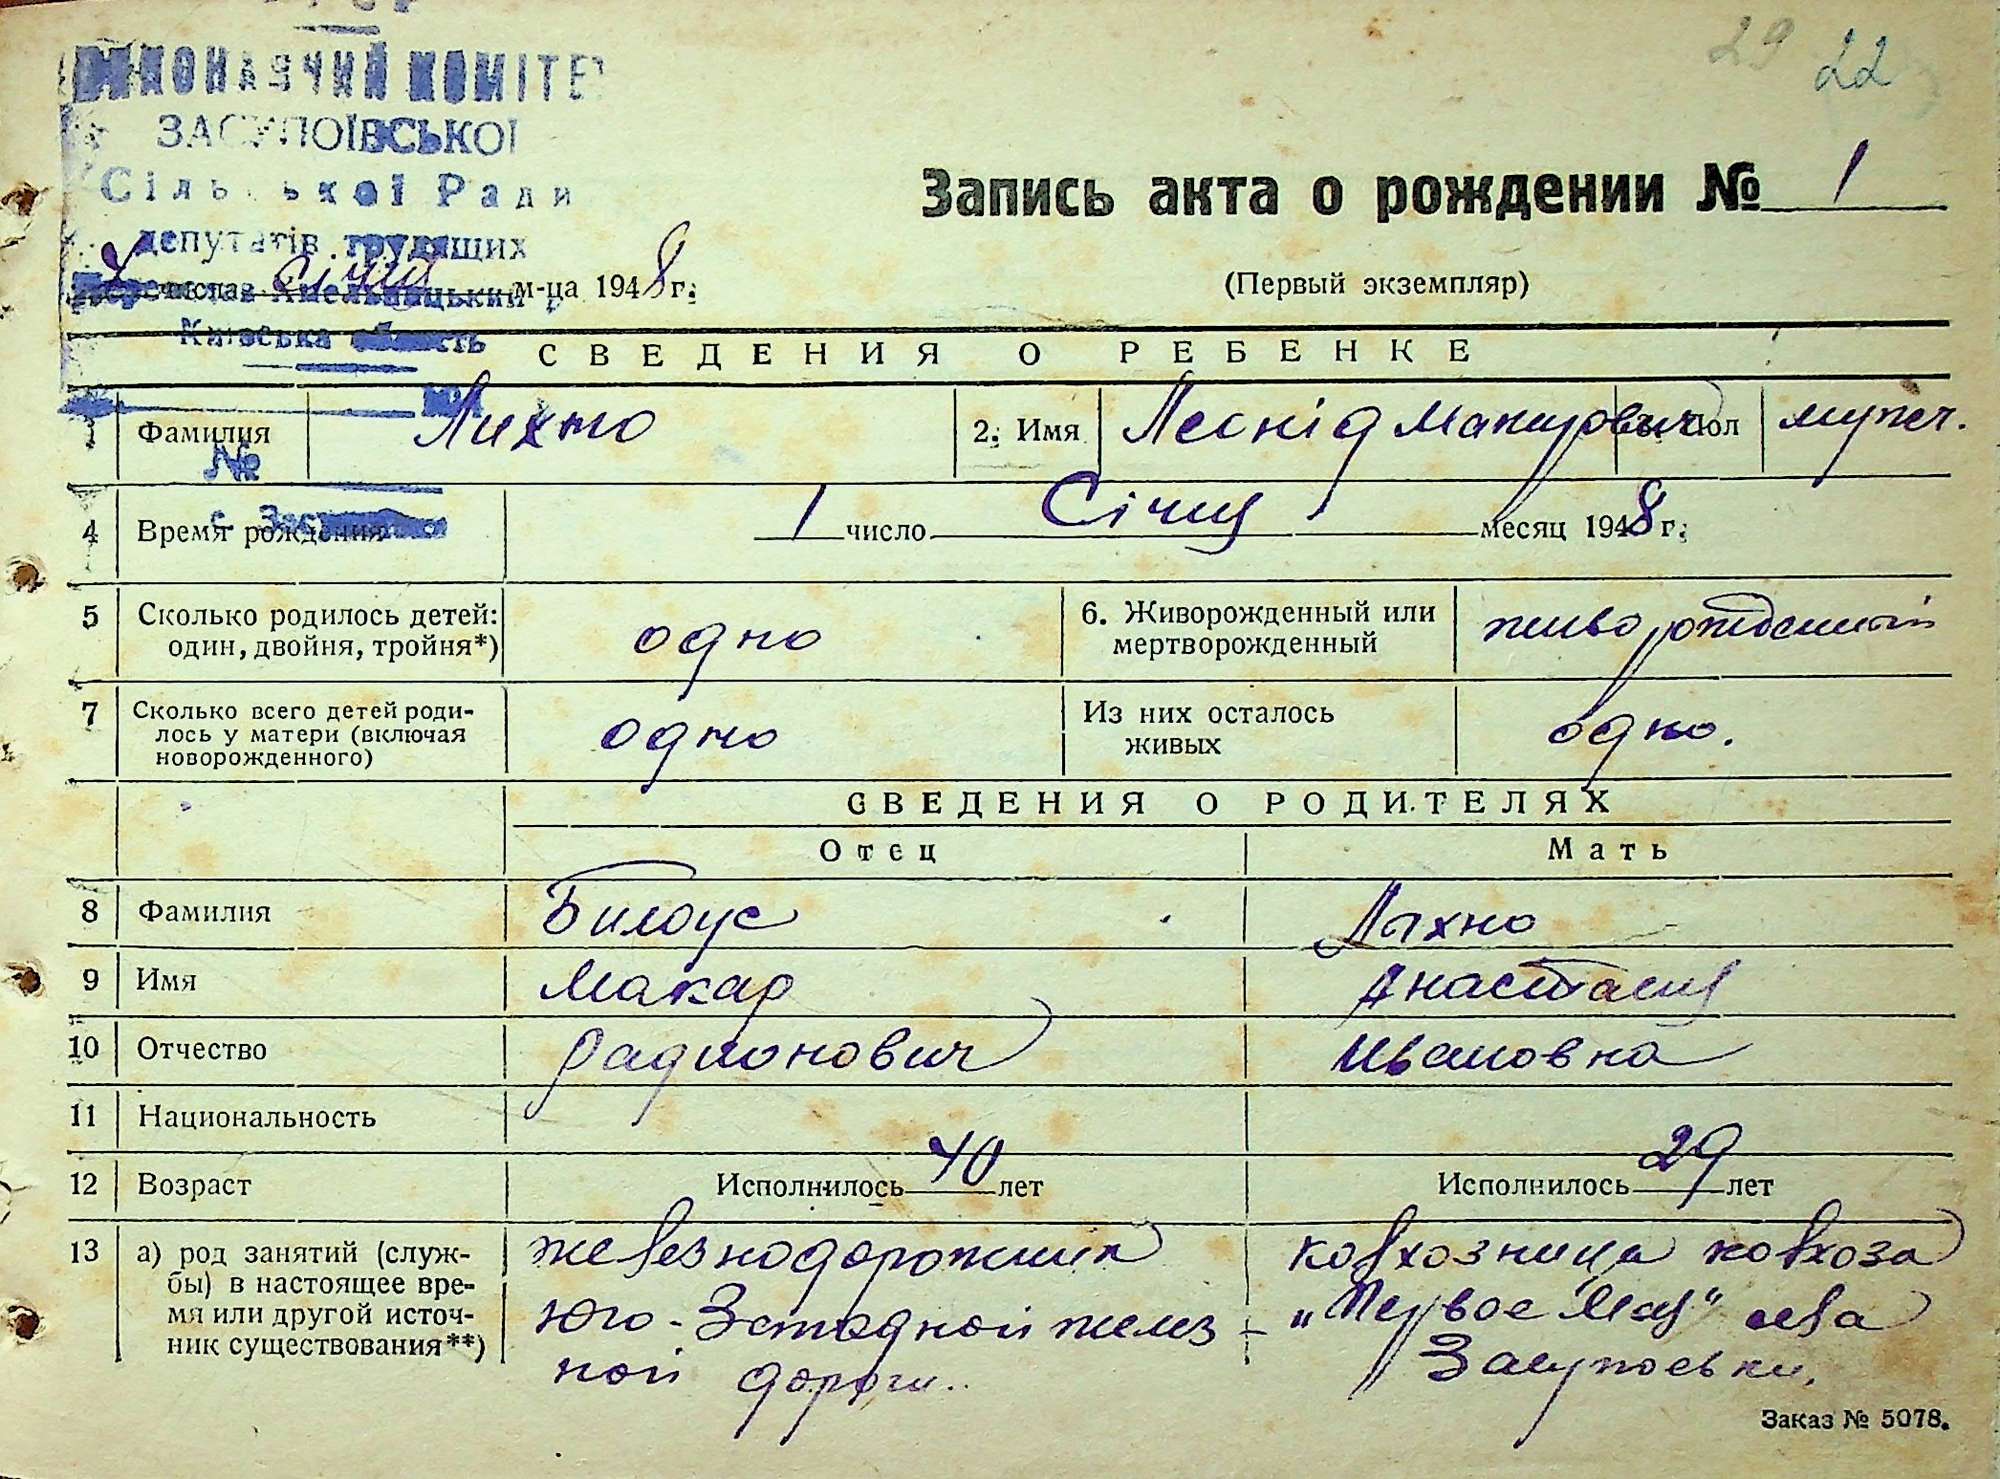 29 22
ВИКОНАВЧИЙ КОМІТЕТ
ЗАСУПОЇВСЬКОЇ
Сільської Ради
депутатів трудящих
Київська область
№
Запись акта о рождении № 1
числа січня м-ца 1948 г.
(Первый экземпляр)
СВЕДЕНИЯ О РЕБЕНКЕ
1 Фамилия Лихно 2. Имя Леонід Макарович 3. Пол мужч.
4 Время рождения 1 число Січня месяц 1948 г.
5 Сколько родилось детей: один, двойня, тройня*) одно 6. Живорожденный или мертворожденный живорожденный
7 Сколько всего детей родилось у матери (включая новорожденного) одно Из них осталось живых одно.
СВЕДЕНИЯ О РОДИТЕЛЯХ
Отец Мать
8 Фамилия Билоус Лихно
9 Имя Макар Анастасия
10 Отчество Радионович Ивановна
11 Национальность
12 Возраст Исполнилось 40 лет Исполнилось 29 лет
13 а) род занятий (служ-
бы) в настоящее вре-
мя или другой источ-
ник существования**)
железнодорожник
Юго-Западной желез-
ной дороги..
колхозница колхоза
"Первое Мая" села
Засупоевки.
Заказ № 5078.